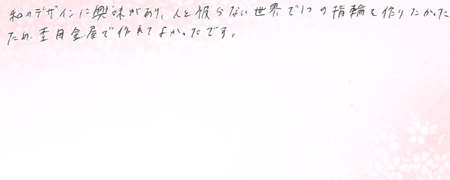 和のデザインに興味があり、人と被らない世界で1つの指輪を作りたかった
ため、杢目金屋で作れてよかったです。